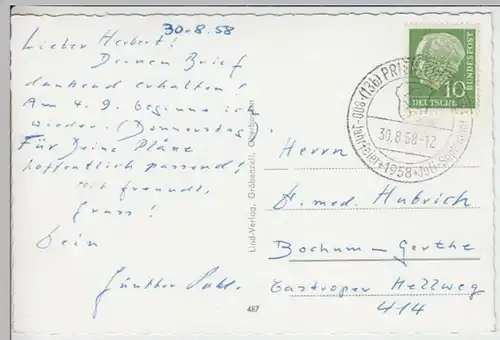 30.8.58
Lieber Herbert!
Deinen Brief
dankend erhalten!
Am 4.9. beginne ich
wieder. (Donnerstag)
Für Deine Pläne
hoffentlich passend!
Mit freundl.
Gruss!
Dein
Günther
Lind-Verlag, Gröbenzell,
487
10
DEUTSCHE
BUNDESPOST
(13b) PRIEN
30.8.58-12
800-Jahrfeier
1958
Herrn
Dr. med. Hubrich
Bochum-Gerthe
Castroper Hellweg
414